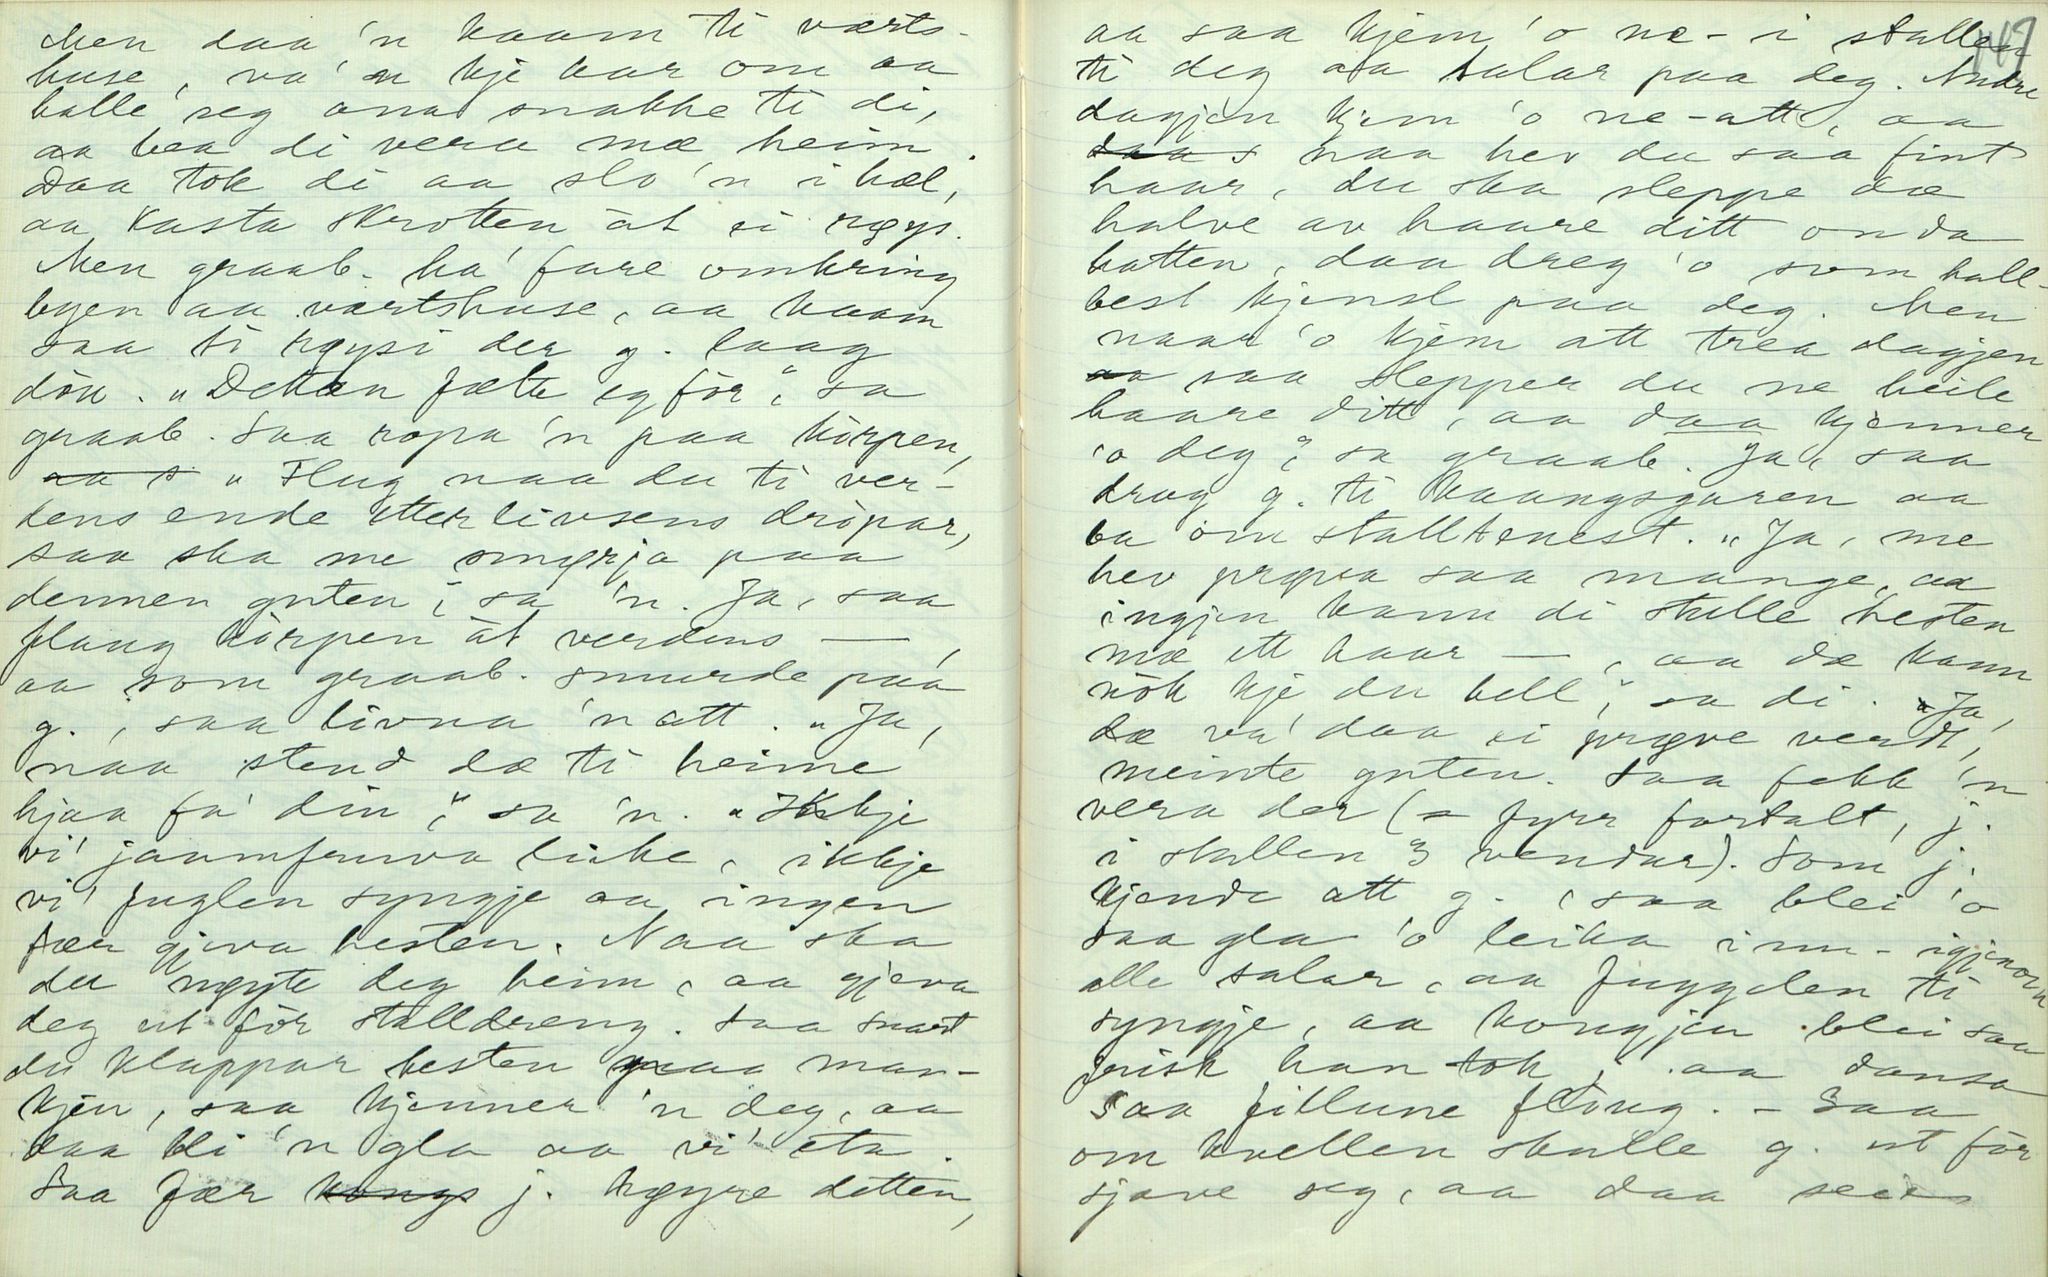 Men daa 'n kaam ti værts-
huse, va' 'n kje kar om aa
halle seg ona snakke ti di,
aa bea di vera mæ heim.
Daa tok di aa slo 'n i hæl,
aa kasta skrotten åt ei røys.
Men graab. ha' fare omkring
byen aa værtshuse, aa kaam
saa ti røysi der g. laag
dön. "Detten fælte eg för", sa
graab. Saa ropa 'n paa körpen,
aa s "Flug naa du ti ver-
dens ende etter livsens dröpar,
saa ska me smørja paa
dennen guten", sa 'n. Ja, saa
flaug körpen åt verdens —,
aa som graab. smurde paa
g., saa livna 'n att. "Ja,
naa stend dæ ti heime
hjaa fa' din", sa 'n. "Ikkje
vi' jaamfruva luke, ikkje
vi' fuglen syngje aa ingen
fær gjeva hesten. Naa ska
du nøyte deg heim, aa gjeva
deg ut för stalldreng. Saa snart
du klappar hesten paa man-
kjen, saa kjenner 'n deg, aa
daa bli 'n gla aa vi' eta.
Saa fær kongs j. høyre detten,
169
aa saa kjem 'o ne- i stallen
ti deg aa talar paa deg. Andre
dagjen kjem 'o ne-att, aa
daa s naa hev du saa fint
haar, du ska sleppe dæ
halve av haare ditt onda
hatten, daa dreg 'o som hall-
best kjensl paa deg. Men
naar 'o kjem att trea dagjen
aa saa slepper du ne heile
haare ditt, aa daa kjenner
'o deg", sa graab. Ja, saa
drog g. ti kaangsgaren aa
ba om stalltenest. "Ja, me
hev prøva saa mange, aa
ingjen kann di stulle hesten
mæ ett haar —, aa dæ kann
nök kje du hell", sa di. "Ja,
dæ va' daa ei prøve verdt,
meinte guten. Saa fekk 'n
vera der (= fyrr fortalt, j.
i stallen 3 vendur). Som j.
kjende att g., saa blei 'o
saa gla 'o leika inn- igjenom
alle salar, aa fuggelen ti
syngje, aa kongjen blei saa
frisk han tok, aa dansa
saa fillune flöug. - Saa
om kvellen skulle g. ut för
sjave seg, aa daa seies